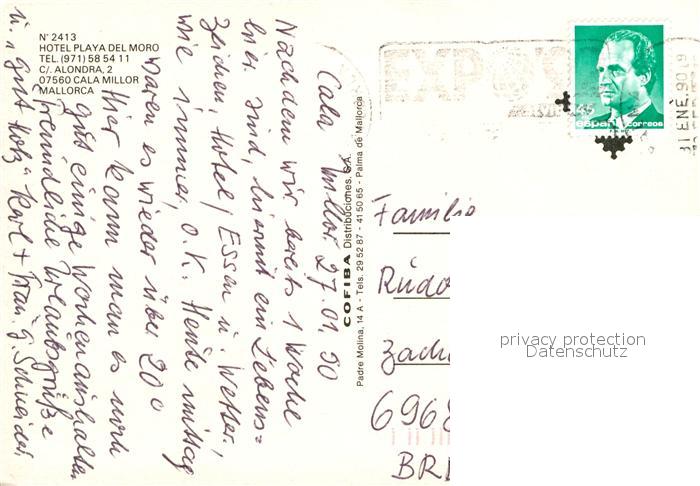 N° 2413
HOTEL PLAYA DEL MORO
TEL. (971) 58 54 11
C/. ALONDRA, 2
07560 CALA MILLOR
MALLORCA
Cala Millor 27.01.90
Nachdem wir bereits 1 Woche
hier sind, hiermit ein Lebens=
zeichen. Hotel, Essen u. Wetter,
wie immer, o.k. Heute mittag
waren es wieder über 20°
Hier kann man es noch
gut einige Wochen aushalten
Freundliche Urlaubsgrüße
u. "gut Holz" Karl + Frau G. Schneider
COFIBA Distribuciones, S.A.
Padre Molina, 14 A - Tels. 29 52 87 - 41 50 65 - Palma de Mallorca
EXPO
31 ENE. 90. 9
45
españa correos
Familie
Rudo
Zach
696
BR
privacy protection
Datenschutz